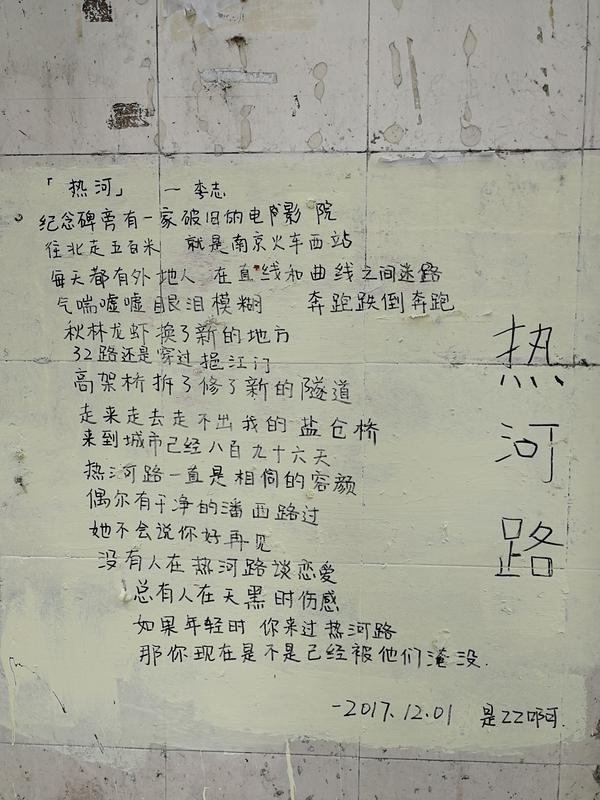 「热河」 —李志
纪念碑旁有一家破旧的电影院
往北走五百米 就是南京火车西站
每天都有外地人 在直线和曲线之间迷路
气喘嘘嘘眼泪模糊 奔跑跌倒奔跑
秋林龙虾换了新的地方
32路还是穿过挹江门
高架桥拆了修了新的隧道
走来走去走不出我的盐仓桥
来到城市已经八百九十六天
热河路一直是相同的容颜
偶尔有干净的潘西路过
她不会说你好再见
没有人在热河路谈恋爱
总有人在天黑时伤感
如果年轻时 你来过热河路
那你现在是不是已经被他们淹没.
-2017.12.01 是ZZ啊.
热河路